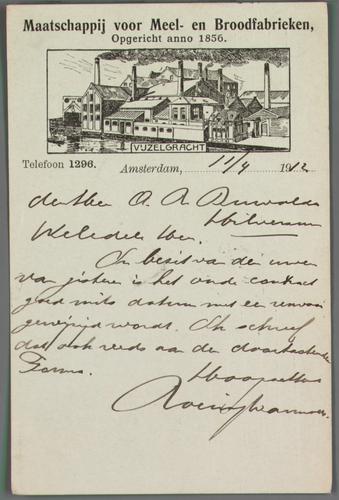 Maatschappij voor Meel- en Broodfabrieken,
Opgericht anno 1856.
VIJZELGRACHT
Telefoon 1296.
Amsterdam, 11/4 1912
den Heer
Hilversum
WelEdele Heer.
In bezit van de uwe
van gisteren is het oude contract
goed mits datum met een renvooi
gewijzigd wordt. Ik schreef
dat ook reeds aan de
Firma.
Hoogachtend